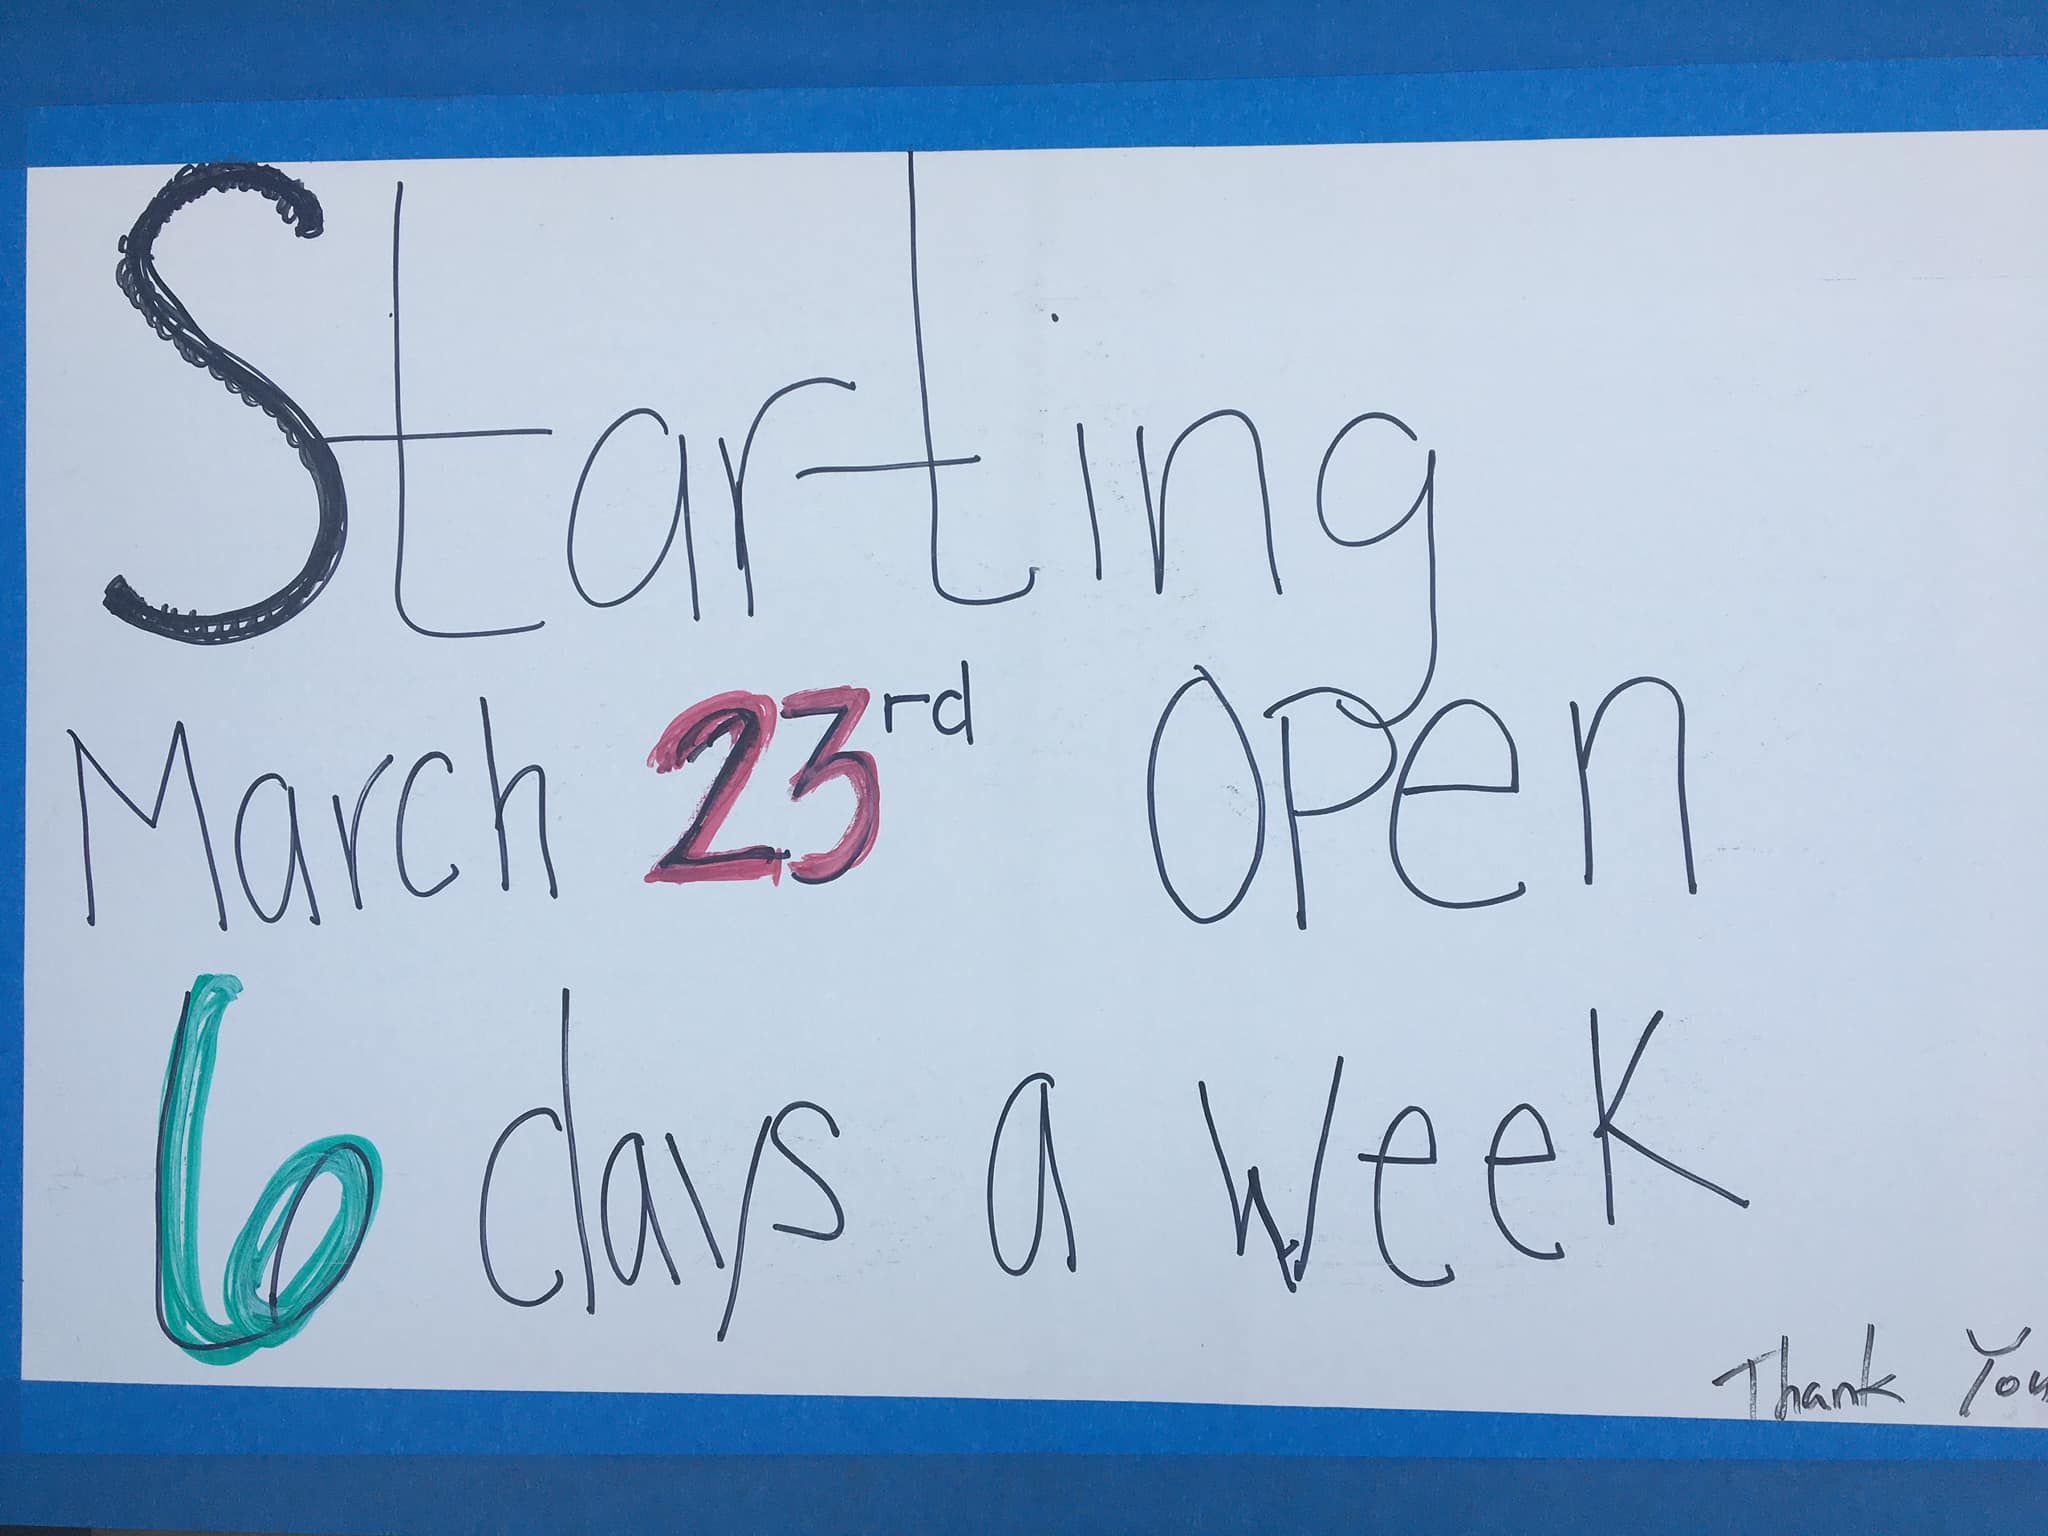 Starting
March 23rd Open
6 days a week
Thank You